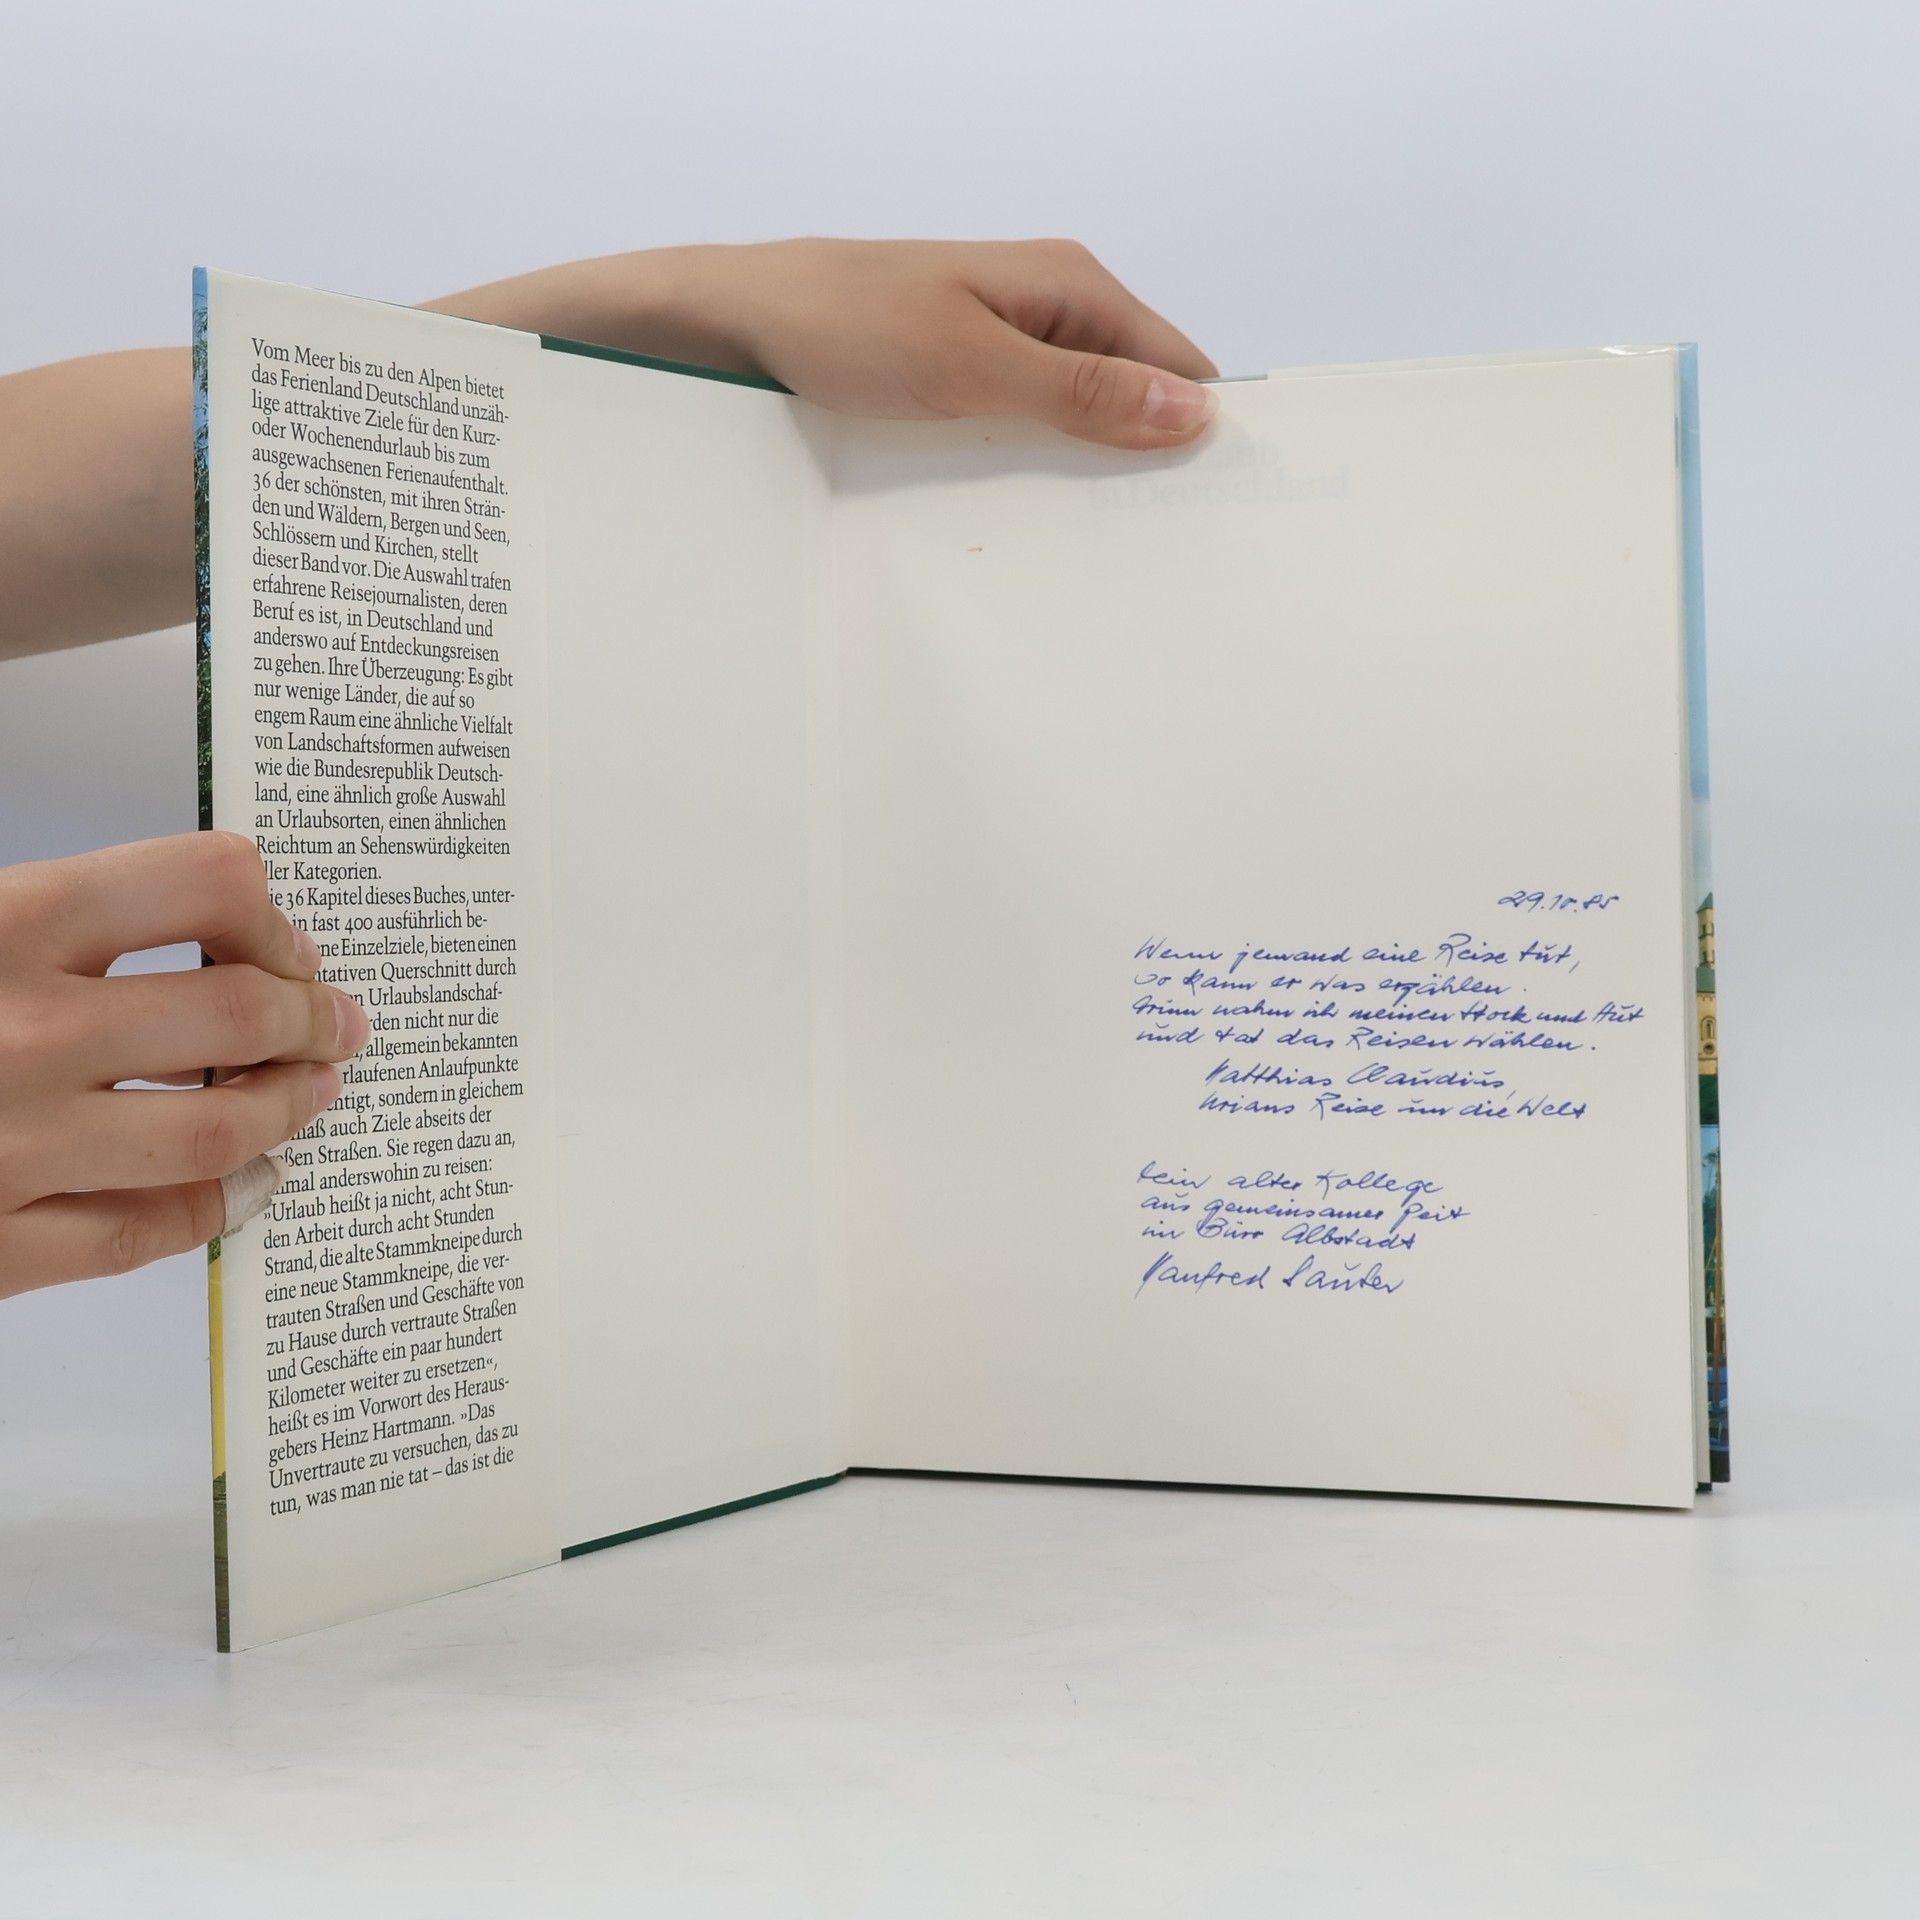 Vom Meer bis zu den Alpen bietet
das Ferienland Deutschland unzäh-
lige attraktive Ziele für den Kurz-
oder Wochenendurlaub bis zum
ausgewachsenen Ferienaufenthalt.
36 der schönsten, mit ihren Strän-
den und Wäldern, Bergen und Seen,
Schlössern und Kirchen, stellt
dieser Band vor. Die Auswahl trafen
erfahrene Reisejournalisten, deren
Beruf es ist, in Deutschland und
anderswo auf Entdeckungsreisen
zu gehen. Ihre Überzeugung: Es gibt
nur wenige Länder, die auf so
engem Raum eine ähnliche Vielfalt
von Landschaftsformen aufweisen
wie die Bundesrepublik Deutsch-
land, eine ähnlich große Auswahl
an Urlaubsorten, einen ähnlichen
Reichtum an Sehenswürdigkeiten
ller Kategorien.
ie 36 Kapitel dieses Buches, unter-
in fast 400 ausführlich be-
ne Einzelziele, bieten einen
ntativen Querschnitt durch
n Urlaubslandschaf-
rden nicht nur die
, allgemein bekannten
rlaufenen Anlaufpunkte
chtigt, sondern in gleichem
maß auch Ziele abseits der
oßen Straßen. Sie regen dazu an,
nmal anderswohin zu reisen:
»Urlaub heißt ja nicht, acht Stun-
den Arbeit durch acht Stunden
Strand, die alte Stammkneipe durch
eine neue Stammkneipe, die ver-
trauten Straßen und Geschäfte von
zu Hause durch vertraute Straßen
und Geschäfte ein paar hundert
Kilometer weiter zu ersetzen«,
heißt es im Vorwort des Heraus-
gebers Heinz Hartmann. »Das
Unvertraute zu versuchen, das zu
tun, was man nie tat – das ist die
in Deutschland
29.10.85
Wenn jemand eine Reise tut,
so kann er was erzählen.
Drum nahm ich meinen Stock und Hut
und tat das Reisen wählen.
Matthias Claudius,
Urians Reise um die Welt
Dein alter Kollege
aus gemeinsamer Zeit
im Büro Albstadt
Manfred Sauter